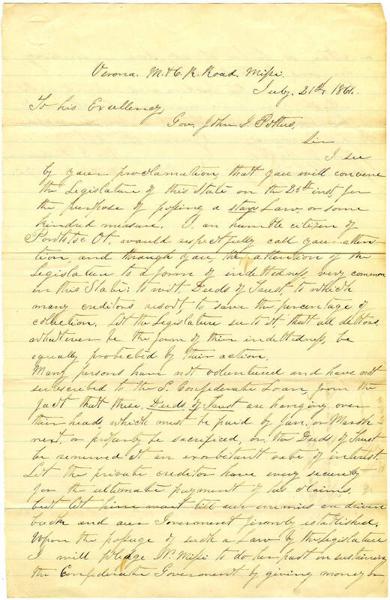 Verona. M. & O. R. Road. Missi.
July. 21st 1861.
To his Excellency
Gov. John J. Pettus,
Sir
I see
by your proclamation, that you will convene
the Legislature of this State on the 25th inst, for
the purpose of passing a stay Law, or some
kindred measure. I, an humble citizen of
Pontotoc Ct. would respectfully call your atten-
tion, and through you, the attention of the
Legislature to a form of indebtedness very common
in this State: to wit, Deeds of Trust to which
many creditors resort, to save the percentage of
collection. Let the Legislature see to it that all debtors
whatever be the form of their indebtedness, be
equally protected by their action.
Many persons have not volunteered and have not
subscribed to the Confederate Loan, from the
fact that these, Deeds of Trust are hanging over
their heads, which must be paid of Jan. or March
next, or property be sacrificed, or, the Deeds of Trust
be renewed at an exorbitant rate of interest.
Let the private creditor have every security
for the ultimate payment of his claims,
but let him wait till our enemies are driven
back and our Government firmly established.
Upon the passage of such a Law by the Legislature
I will pledge N. Missi to do her part in sustaining
the Confederate Government by giving money or